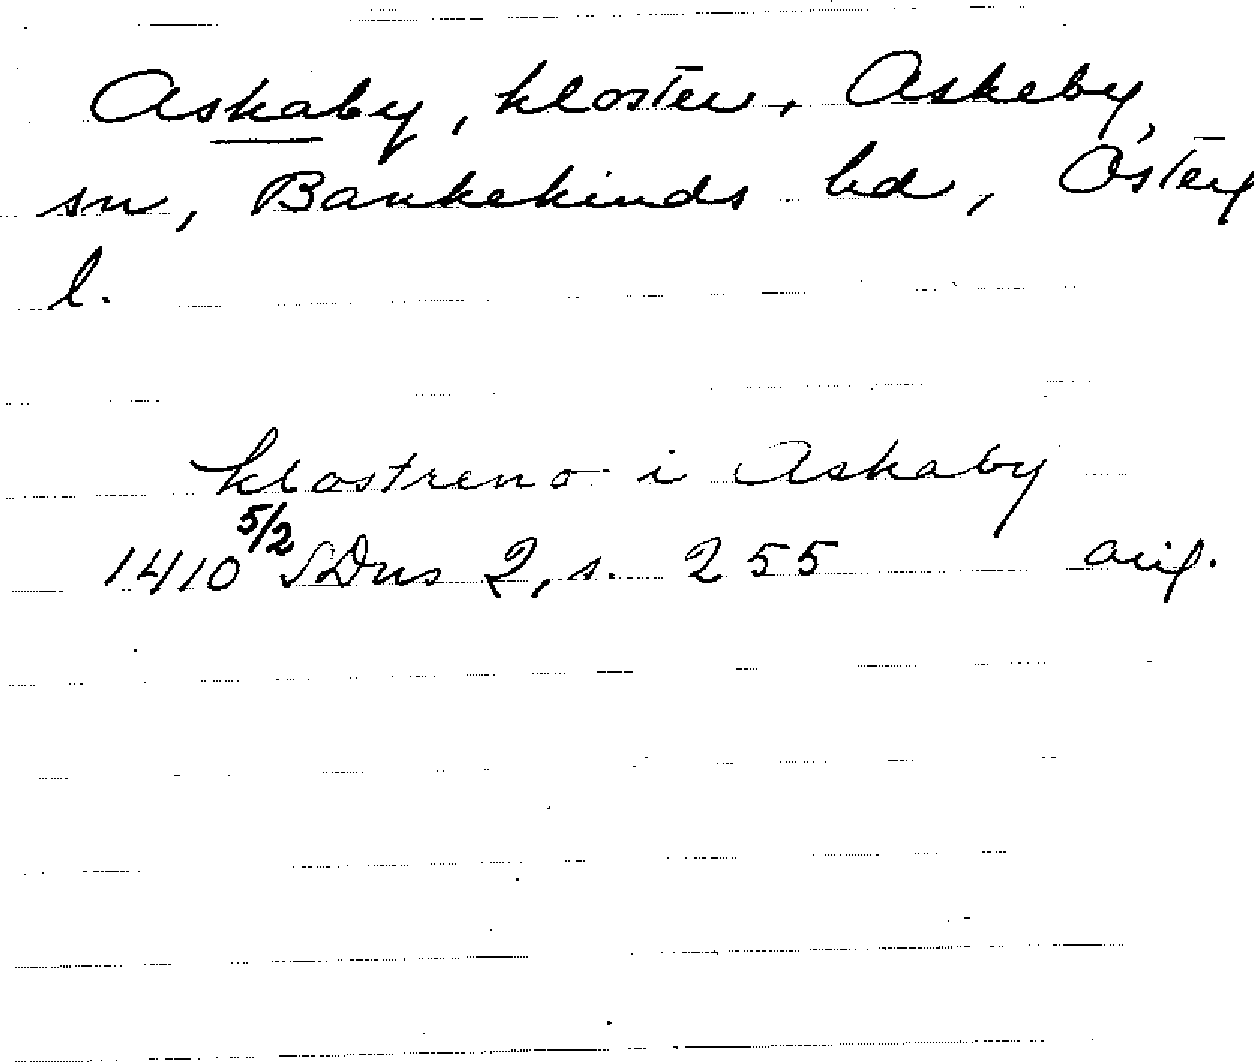 Askaby, kloster, Askeby
sn, Bankekinds hd, Österg
l.
klostreno i Askaby
1410 5/2 SDns 2, s. 255 orig.